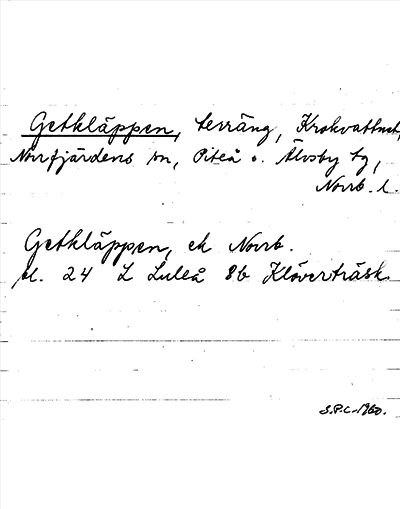 Getkläppen, terräng, Krokvattnet,
Norrfjärdens sn, Piteå o. Älvsby tg,
Norrb. l.
Getkläppen, ek Norrb.
bl. 24 L Luleå 8b Klöverträsk
S.P.C-1960.